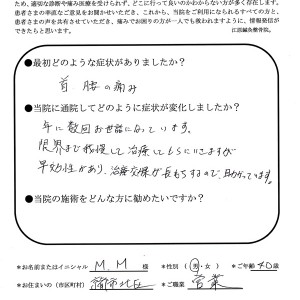 め、適切な診断や痛み医療を受けられず、どこに行って良いのかわからない方が多く存在します。
患者さまの率直なご意見をお聞かせいただき、これから、当院をご利用になられるすべての方と、
患者さまの声を共有させていただき、痛みでお困りの方が一人でも救われますように、情報発信が
できたらと思います。
江原鍼灸整骨院。
●最初どのような症状がありましたか？
首 腰の痛み
●当院に通院してどのように症状が変化しましたか？
年に数回お世話になっています。
限界まで我慢して治療してもらいにいきますが
早効性があり、治療交換が長もちするので、助かっています。
●当院の施術をどんな方に勧めたいですか？
*お名前またはイニシャル M.M 様 *性別（男・女） *ご年齢 40歳
*お住まいの（市区町村） 堺市北区 *ご職業 営業